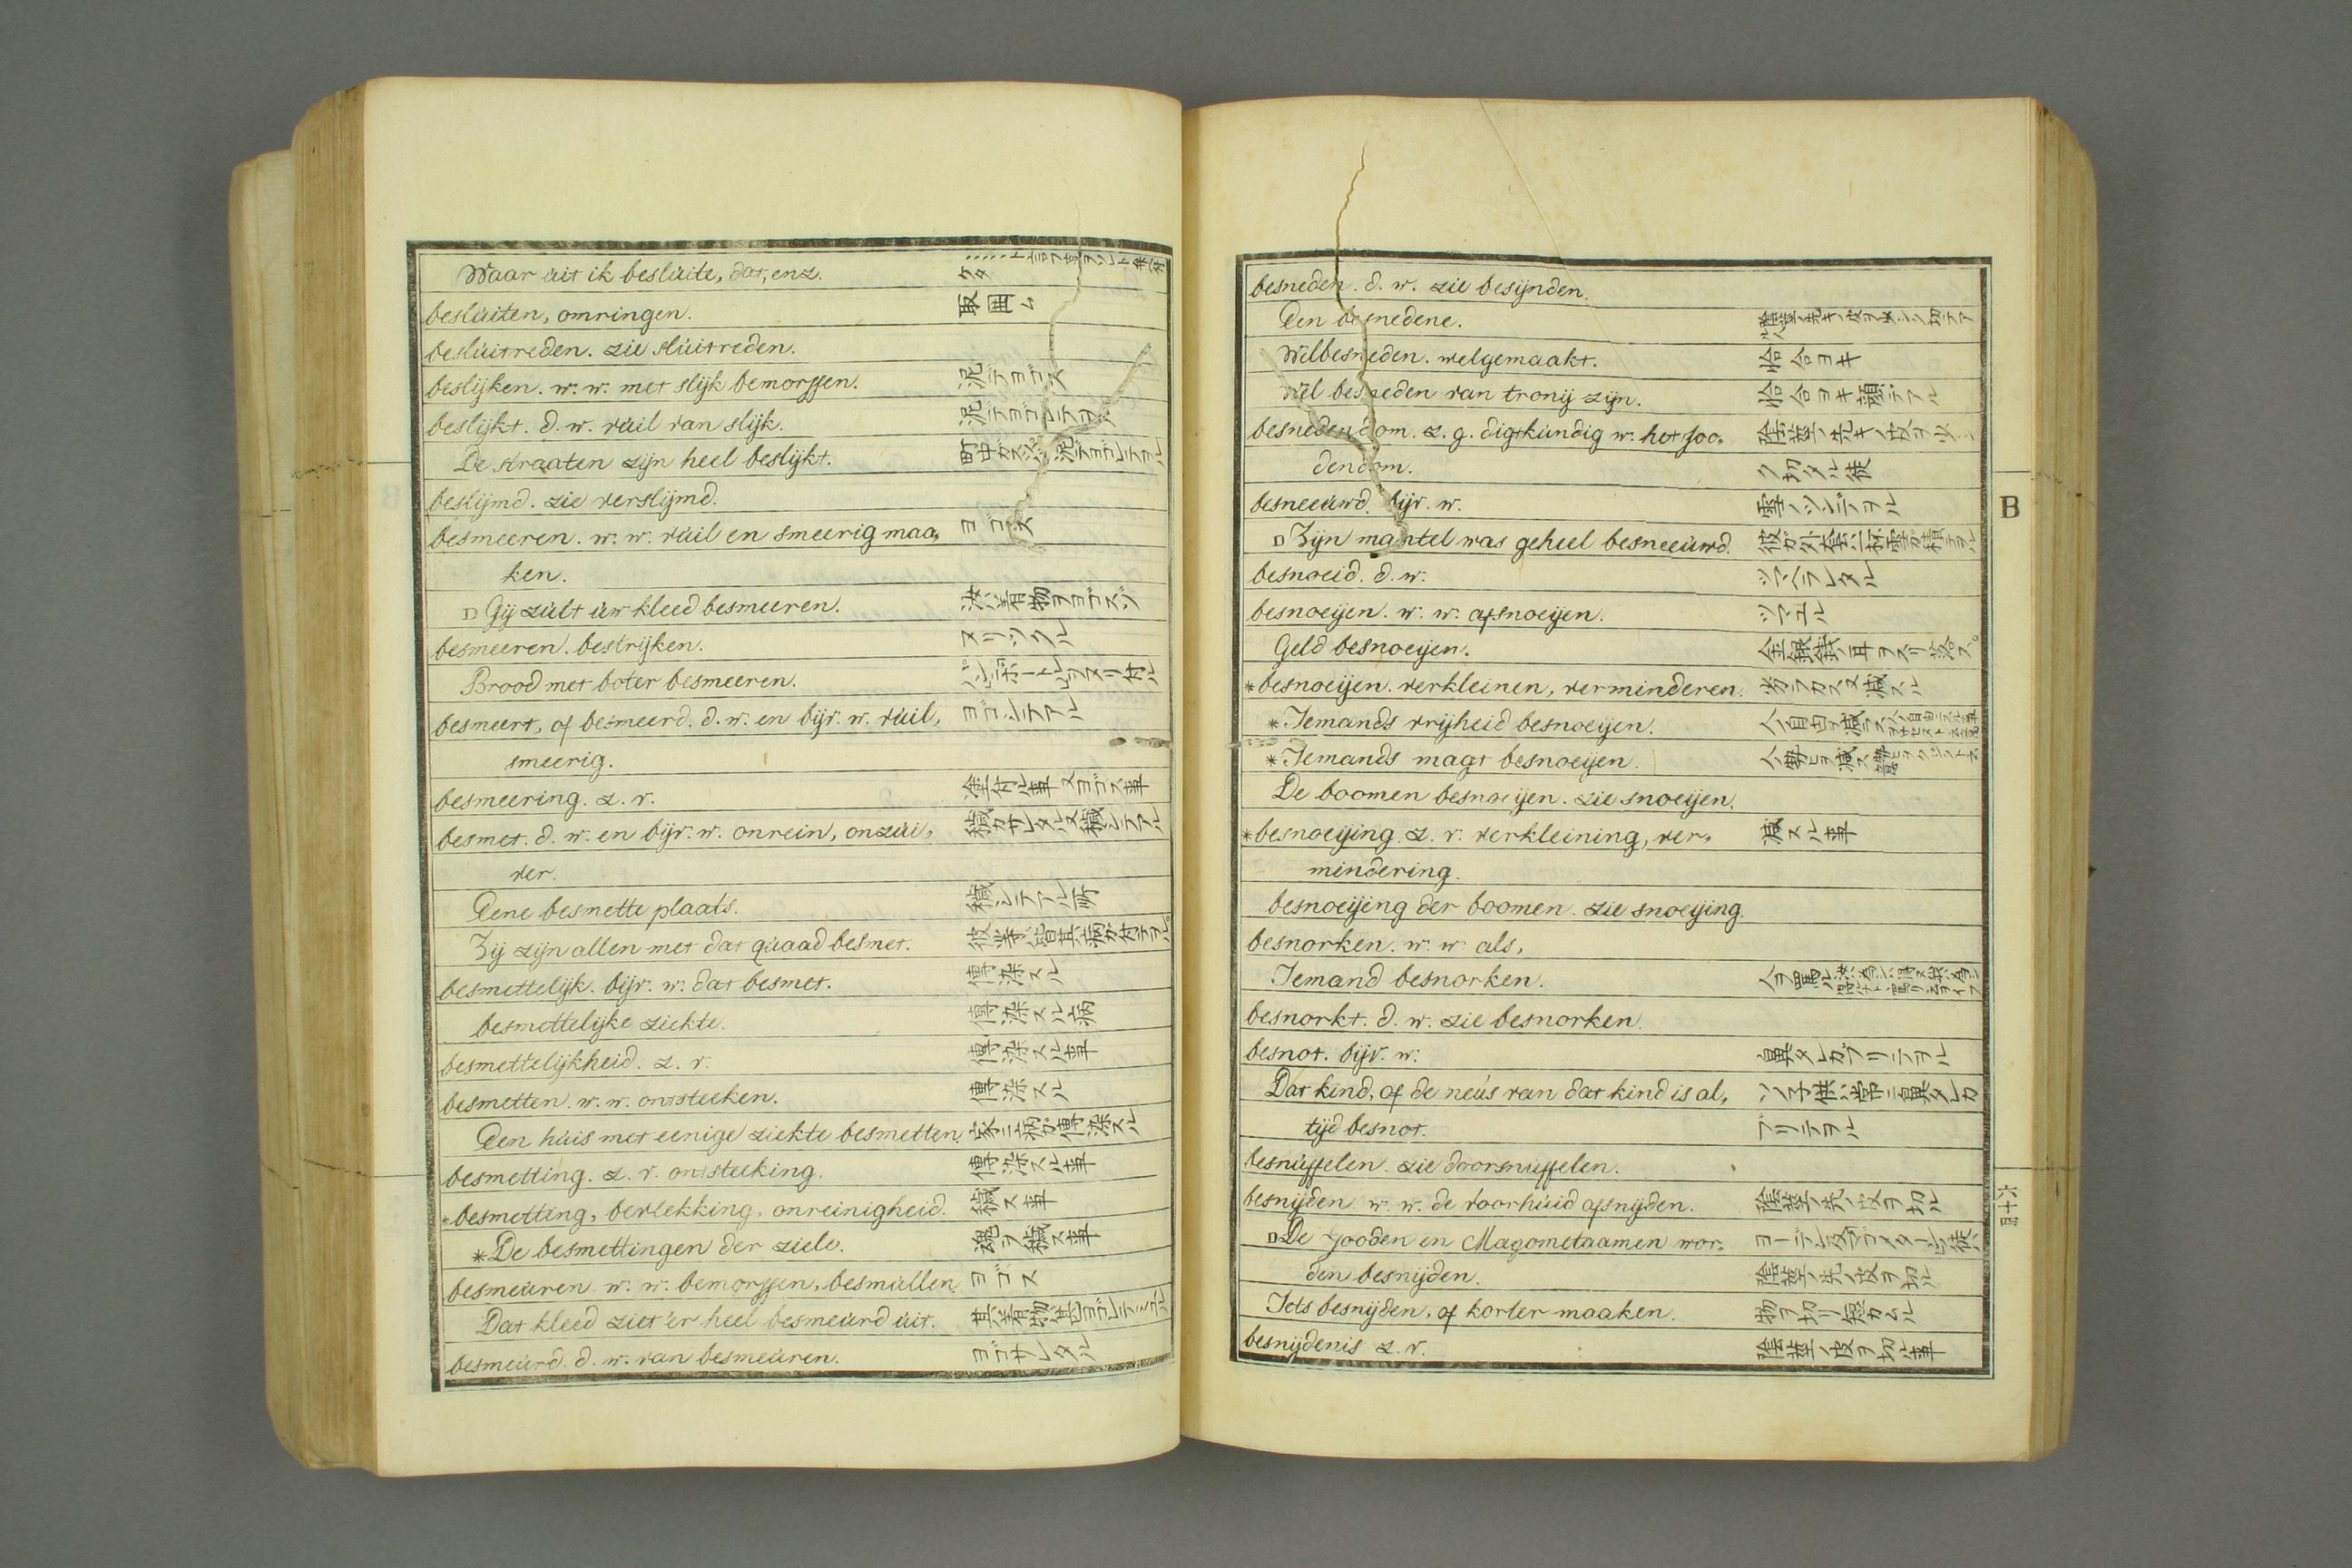 Waar uit ik besluite, dat, enz.
besluiten, omringen. 取囲ム
besluitreden. zie sluitreden.
beslijken. w. w. met slijk bemorssen. 泥デヨゴス
beslijkt. d. w. vuil van slijk. 泥デヨゴレテヲル
De straaten zijn heel beslijkt.
beslijmd. zie verslijmd.
besmeeren. w. w. vuil en smeerig maa, ヨゴス
ken.
Gij zult uw kleed besmeeren. 汝ハ着物ヲヨゴスゾ
besmeeren. bestrijken. ヌリツクル
Brood met boter besmeeren.
besmeert, of besmeerd. d. w. en bijv. w. vuil, ヨゴレテアル
smeerig.
besmeering. z. v. 塗付ル事又ヨゴス事
besmet. d. w. en bijv. w. onrein, onzui, 穢カサレタル又穢レテアル
ver.
Eene besmette plaats. 穢レテアル所
Zij zijn allen met dat quaad besmet.
besmettelijk. bijv. w. dat besmet. 傳染スル
besmettelijke ziekte. 傳染スル病
besmettelijkheid. z. v. 傳染スル事
besmetten. w. w. onsteeken. 傳染スル
Een huis met eenige ziekte besmetten. 家ニ病ガ傳染スル
besmetting. z. v. onsteeking. 傳染スル事
*besmetting, bevlekking, onreinigheid. 穢ス事
*De besmettingen der ziele. 魂ヲ穢ス事
besmeuren. w. w. bemorssen, besmullen. ヨゴス
Dat kleed ziet 'er heel besmeurd uit.
besmeurd. d. w. van besmeuren. ヨゴサレタル
besneden. d. w. zie besijnden.
Een besnedene.
Welbesneden. welgemaakt. 恰合ヨキ
Wel besneden van tronij zijn. 恰合ヨキ顔デアル
besnedendom. z. g. digtkundig w. het Joo,
dendom. ク切タル徒
besneeuwd. bijv. w. 雪ノツンデヲル
Zijn mantel was geheel besneeuwd.
besnoeid. d. w. ツマヘラレタル
besnoeijen. w. w. afsnoeijen. ツマユル
Geld besnoeijen.
*besnoeijen. verkleinen, verminderen.
*Iemands vrijheid besnoeijen.
*Iemands magt besnoeijen.
De boomen besnoeijen. zie snoeijen.
*besnoeijing. z. v. verkleining, ver, 減スル事
mindering.
besnoeijing der boomen. zie snoeijing.
besnorken. w. w. als,
Iemand besnorken.
besnorkt. d. w. zie besnorken.
besnot. bijv. w. 鼻タレガブリテヲル
Dat kind, of de neus van dat kind is al, ソノ子供ハ常ニ鼻タレカ
tijd besnot. ブリテヲル
besnuffelen. zie doorsnuffelen.
besnijden. w. w. de voorhuid afsnijden. 陰莖ノ先ノ皮ヲ切ル
De Jooden en Magometaamen wor,
den besnijden. 陰莖ノ先ノ皮ヲ切ル
Iets besnijden, of korter maaken. 物ヲ切リ短カムル
besnijdenis z. v. 陰莖ノ皮ヲ切ル事
B
六十四